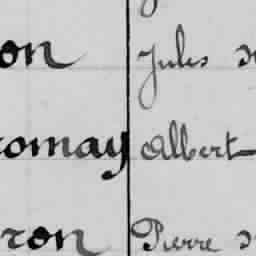 on Jules
romay Albert
ron Pierre